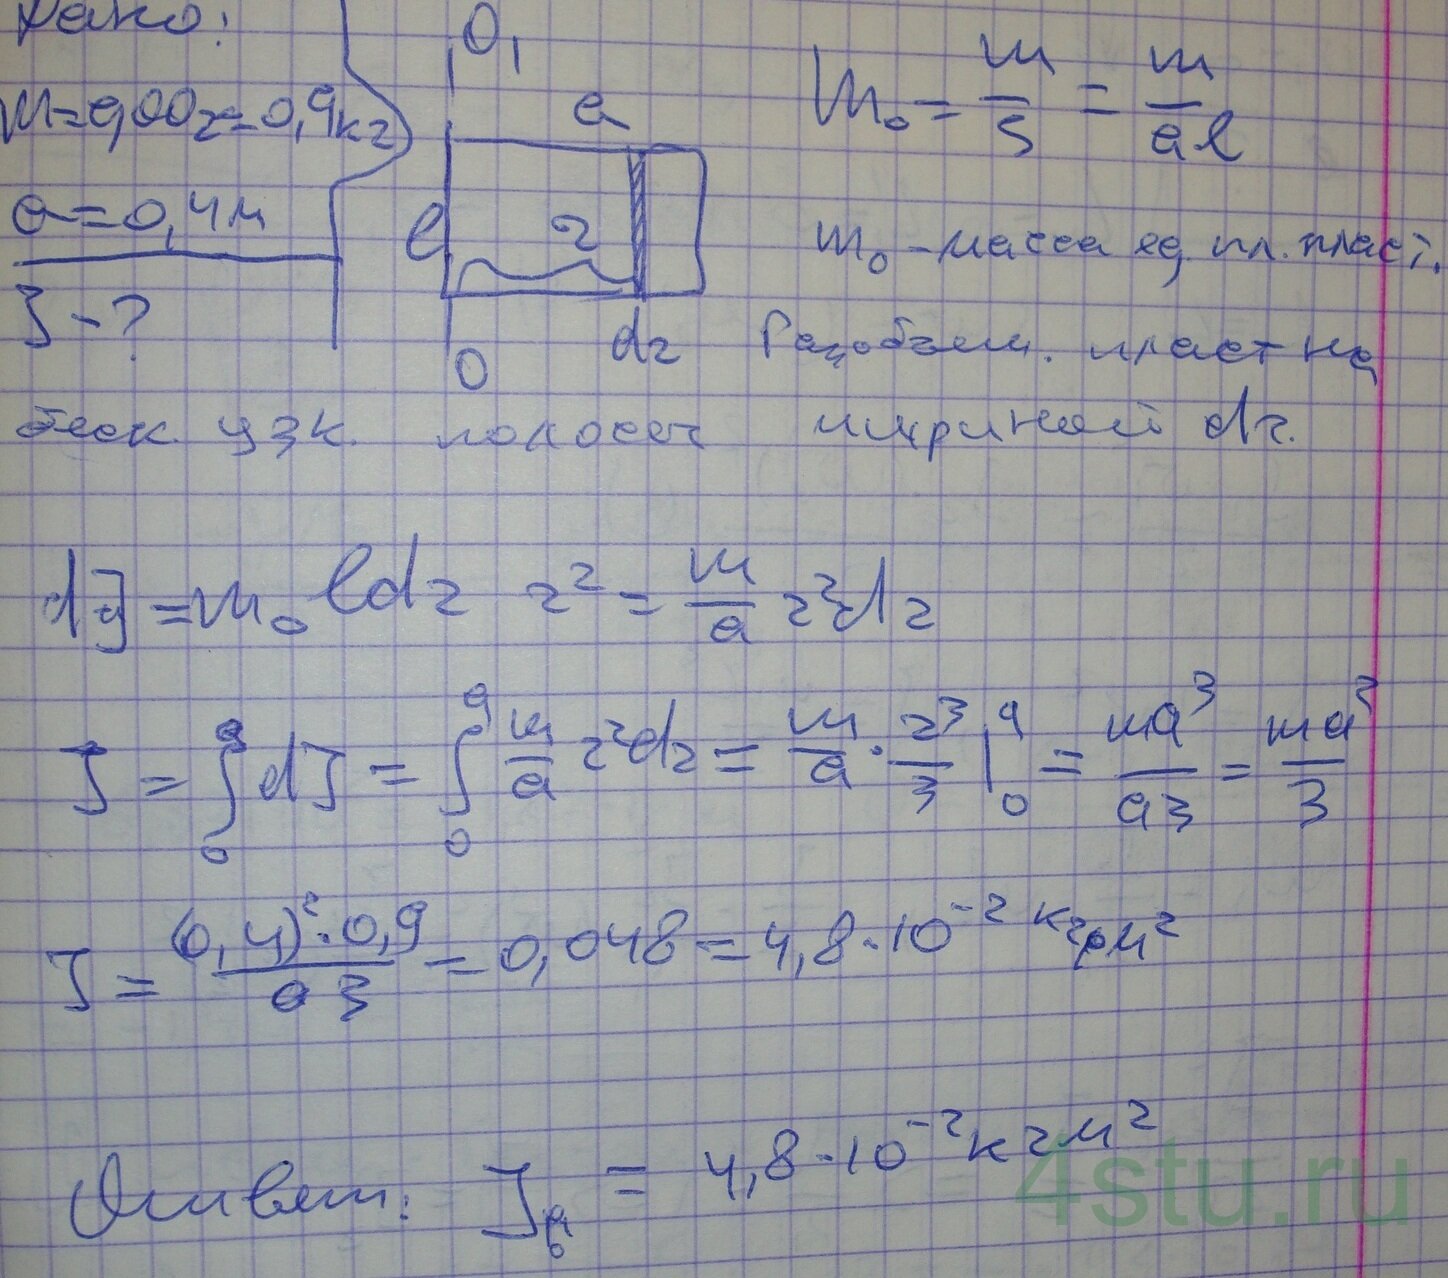 Дано:
m=900г=0,9кг
a=0,4м
J-?
O₁
a
l
r
dr
O
m₀ = m/S = m/al
m₀ - масса ед. пл. пласт.
Разобьем. пласт на
беск. узк. полосы шириной dr.
dJ = m₀ldr r² = m/a r²dr
J = ∫₀ᵃ dJ = ∫₀ᵃ m/a r²dr = m/a · r³/3 |₀ᵃ = ma³/a3 = ma²/3
J = (0,4)²·0,9/3 = 0,048 = 4,8·10⁻² кг·м²
Ответ: J = 4,8·10⁻² кгм²
4stu.ru